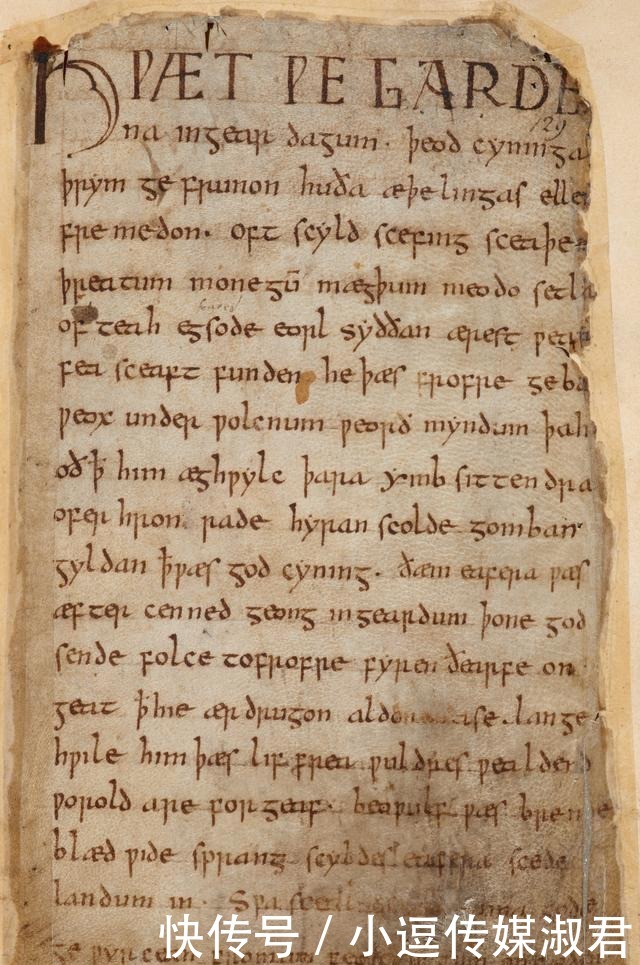 HǷÆT ǷE GARDE
129
na ingear dagum. þeod cyninga
þrym ge frunon huða æþelingas elle
fremedon. oft scyld scefing sceaþe
þreatum monegū mægþum meodo setla
of teah egsode eorl syððan ærest
fea sceaft funden he þæs frofre geba
ƿeox under ƿolcnum ƿeorð myndum þah
oð ꝥ him æghƿylc þara ymb sittendra
ofer hron rade hyran scolde gomban
gyldan ꝥ ƿæs god cyning. ðæm eafera ƿæs
æfter cenned geong ingeardum þone god
sende folce tofrofre fyren ðearfe on
geat ꝥ hie ær drugon lange
hƿile him þæs lif frea ƿuldres ƿealdend
ƿorold are for geaf. beoƿulf ƿæs breme
blæd ƿide sprang scyldes eafera scede
landum in. Sƿa sceal
快传号 / 小逗传媒淑君